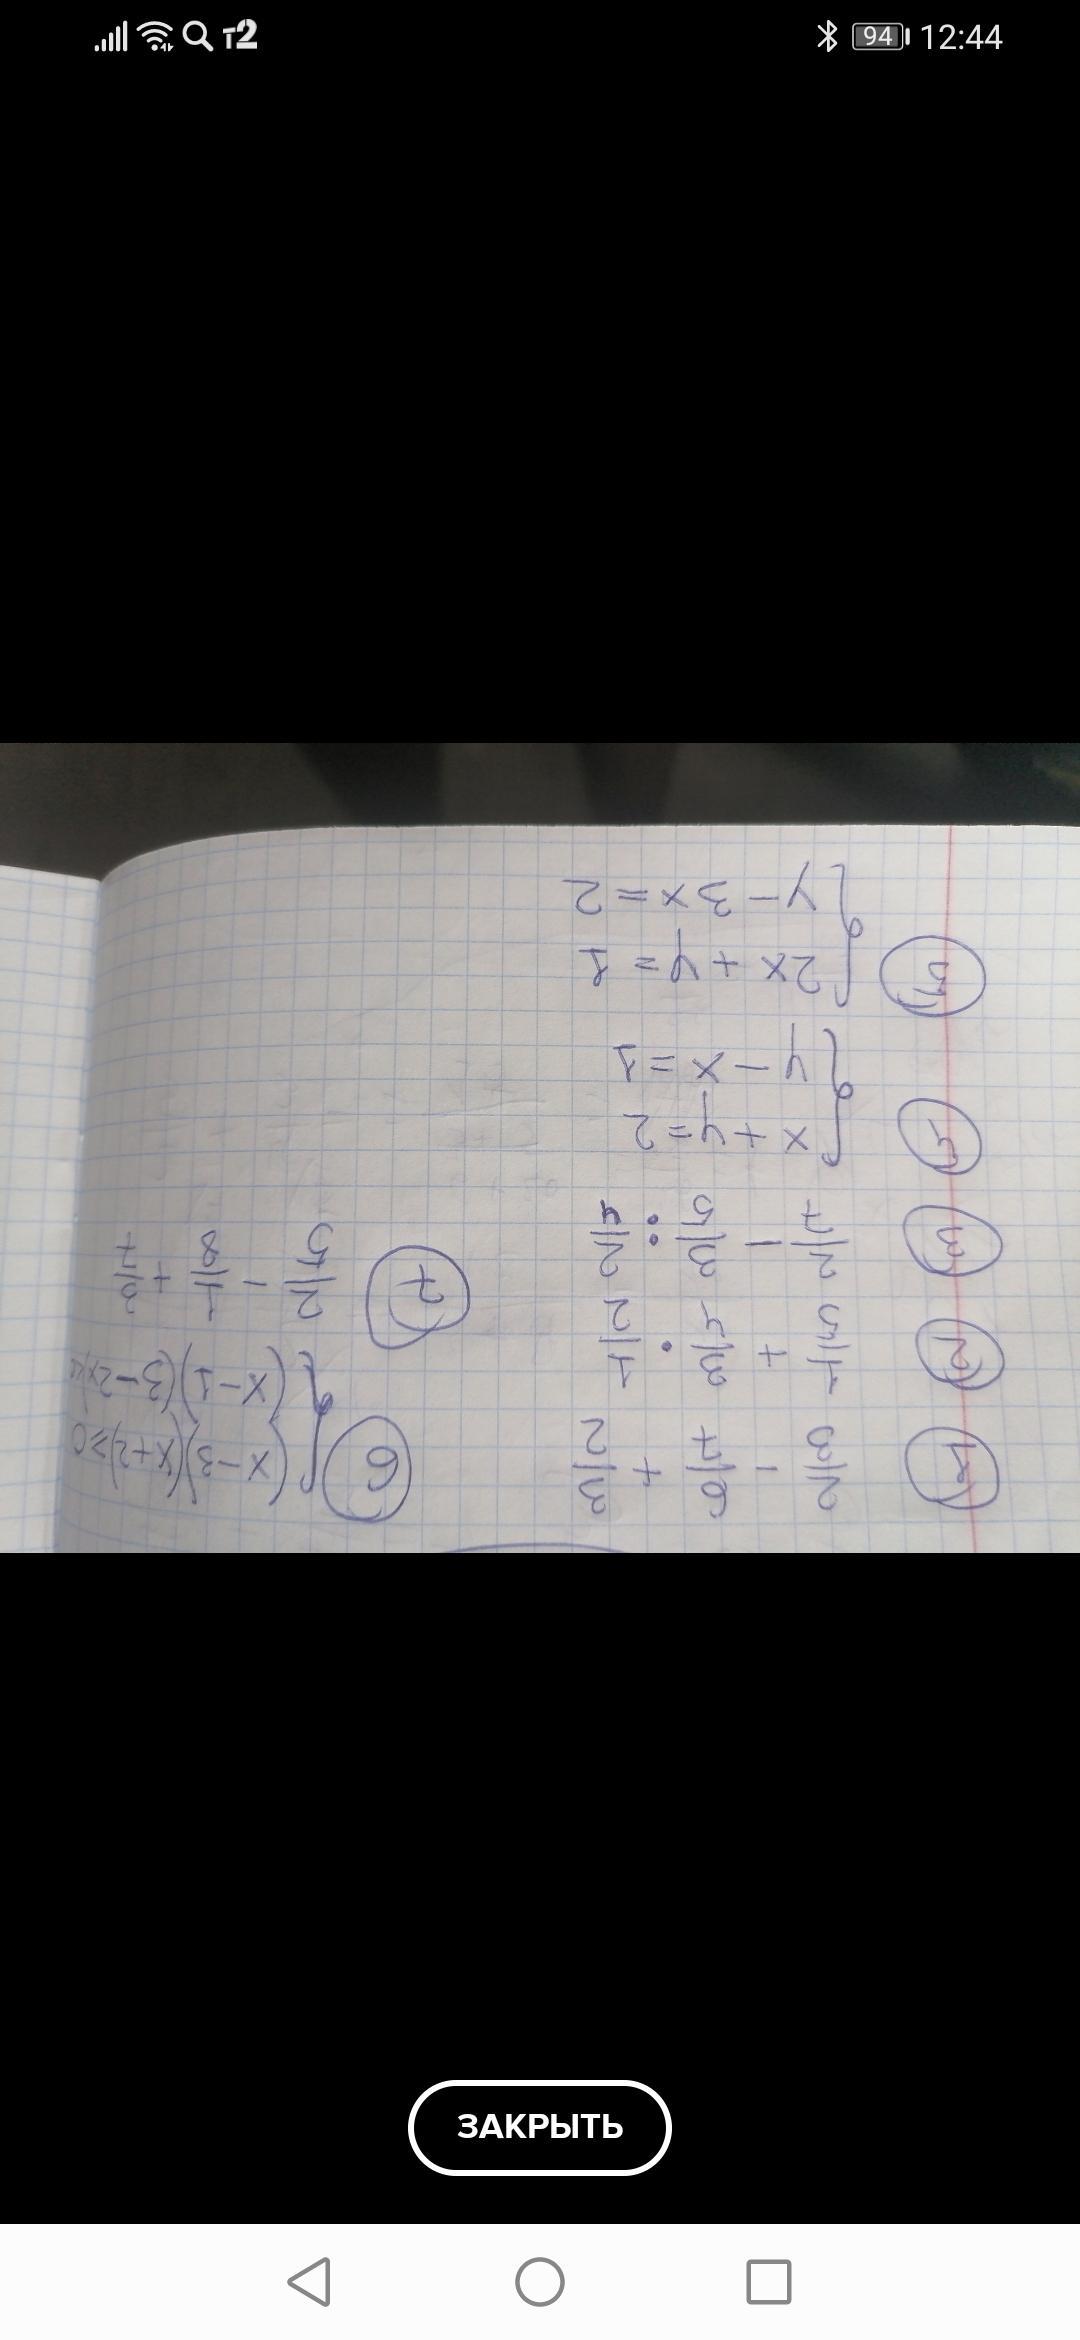 т2 94 12:44
1 2/3 - 6/7 + 3/2
2 1/5 + 3/4 · 1/2
3 2/7 - 3/5 : 2/4
4 { x + y = 2
y - x = 1
5 { 2x + y = 1
y - 3x = 2
6 { (x-3)(x+2)≥0
(x-1)(3-2x)
7 2/5 - 1/8 + 3/7
ЗАКРЫТЬ